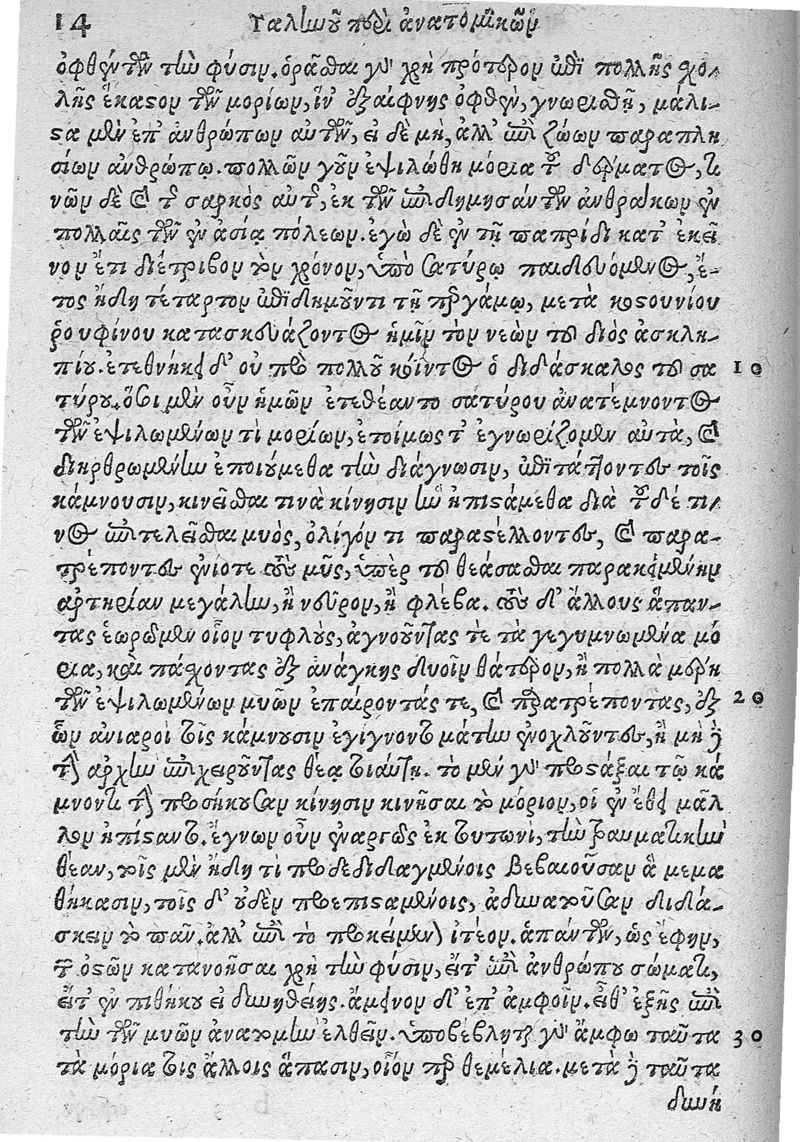 14 Γαλίωοῦ περὶ ἀνατομικῶν
ὀφθέντων τὴν φύσιν. ὁρᾶσθαι γὰρ χρὴ πρότερον ἐπὶ πολλῆς χο-
λῆς ἕκαστον τῶν μορίων, ἵν' ἐξαίφνης ὀφθὲν, γνωρισθῇ, μάλι-
στα μὲν ἐπ' ἀνθρώπων αὐτῶν, εἰ δὲ μὴ, ἀλλ' ἐπὶ ζώων παραπλη
σίων ἀνθρώπῳ. πολλῶν γοῦν ἐψιλώθη μόρια τοῦ δέρματος, τι
νῶν δὲ καὶ τῆς σαρκὸς αὐτῆς, ἐκ τῶν ἐπιδημησάντων ἀνθράκων ἐν
πολλαῖς τῶν ἐν ἀσίᾳ πόλεων. ἐγὼ δὲ ἐν τῇ παπρίδι κατ' ἐκεῖ
νον ἔτι διέτριβον τὸν χρόνον, ὑπὸ σατύρῳ παιδευόμενος, ἔ-
τος ἤδη τέταρτον ἐπιδημοῦντι τῇ περγάμῳ, μετὰ κοστουνίου
ῥουφίνου κατασκευάζοντος ἡμῖν τὸν νεὼν τοῦ διὸς ἀσκλη-
πίου. ἐτεθνήκει δ' οὐ πρὸ πολλοῦ κόϊντος ὁ διδάσκαλος τοῦ σα 10
τύρου. ὅσοι μὲν οὖν ἡμῶν ἐτεθέαντο σατύρου ἀνατέμνοντος
τῶν ἐψιλωμένων τὶ μορίων, ἑτοίμως τ' ἐγνωρίζομεν αὐτὰ, καὶ
διηρθρωμένην ἐποιούμεθα τὴν διάγνωσιν, ἐπιτάττοντες τοῖς
κάμνουσιν, κινεῖσθαι τινὰ κίνησιν ἣν ἠπιστάμεθα διὰ τοῦδέ τι-
νος ἐπιτελεῖσθαι μυὸς, ὀλίγον τι παραστέλλοντες, καὶ παρα-
τρέποντες ἐνίοτε τοὺς μῦς, ὑπὲρ τοῦ θεάσασθαι παρακειμένην
ἀρτηρίαν μεγάλην, ἢ νεῦρον, ἢ φλέβα. τοὺς δ' ἄλλους ἅπαν-
τας ἑωρῶμεν οἷον τυφλοὺς, ἀγνοοῦντας τὲ τὰ γεγυμνωμένα μό
ρια, καὶ πάσχοντας ἐξ ἀνάγκης δυοῖν θάτερον, ἢ πολλὰ μέρη
τῶν ἐψιλωμένων μυῶν ἐπαίροντάς τε, καὶ παρατρέποντας, ἐξ 20
ὧν ἀνιαροὶ τοῖς κάμνουσιν ἐγίγνοντο μάτην ἐνοχλοῦντες, ἢ μὴ δὲ
τὴν ἀρχὴν ἐπιχειροῦντας θέᾳ τοιαύτῃ. τὸ μὲν γὰρ προστάξαι τῷ κά
μνοντι τὴν προσήκουσαν κίνησιν κινῆσαι τὸ μόριον, οἱ ἐν ἔθει μᾶλ
λον ἠπίσταντο. ἔγνων οὖν ἐναργῶς ἐκ τουτωνὶ, τὴν τραυματικὴν
θέαν, τοῖς μὲν ἤδη τὶ προδεδιδαγμένοις βεβαιοῦσαν ἃ μεμα
θήκασιν, τοῖς δ' οὐδὲν προεπισταμένοις, ἀδυνατοῦσαν διδά-
σκειν τὸ πᾶν. ἀλλ' ἐπὶ τὸ προκείμενον ἰτέον. ἁπάντων, ὡς ἔφην,
τῶν ὀστῶν κατανοῆσαι χρὴ τὴν φύσιν, εἴτ' ἐπὶ ἀνθρώπου σώματι,
εἴτ' ἐν πιθήκου εἰ δυνηθείης. ἄμεινον δ' ἐπ' ἀμφοῖν. εἶθ' ἑξῆς ἐπὶ
τὴν τῶν μυῶν ἀνατομὴν ἐλθεῖν. ὑποβέβληται γὰρ ἄμφω ταῦτα 30
τὰ μόρια τοῖς ἄλλοις ἅπασιν, οἷον περ θεμέλια. μετὰ δὲ ταῦτα
δυνή